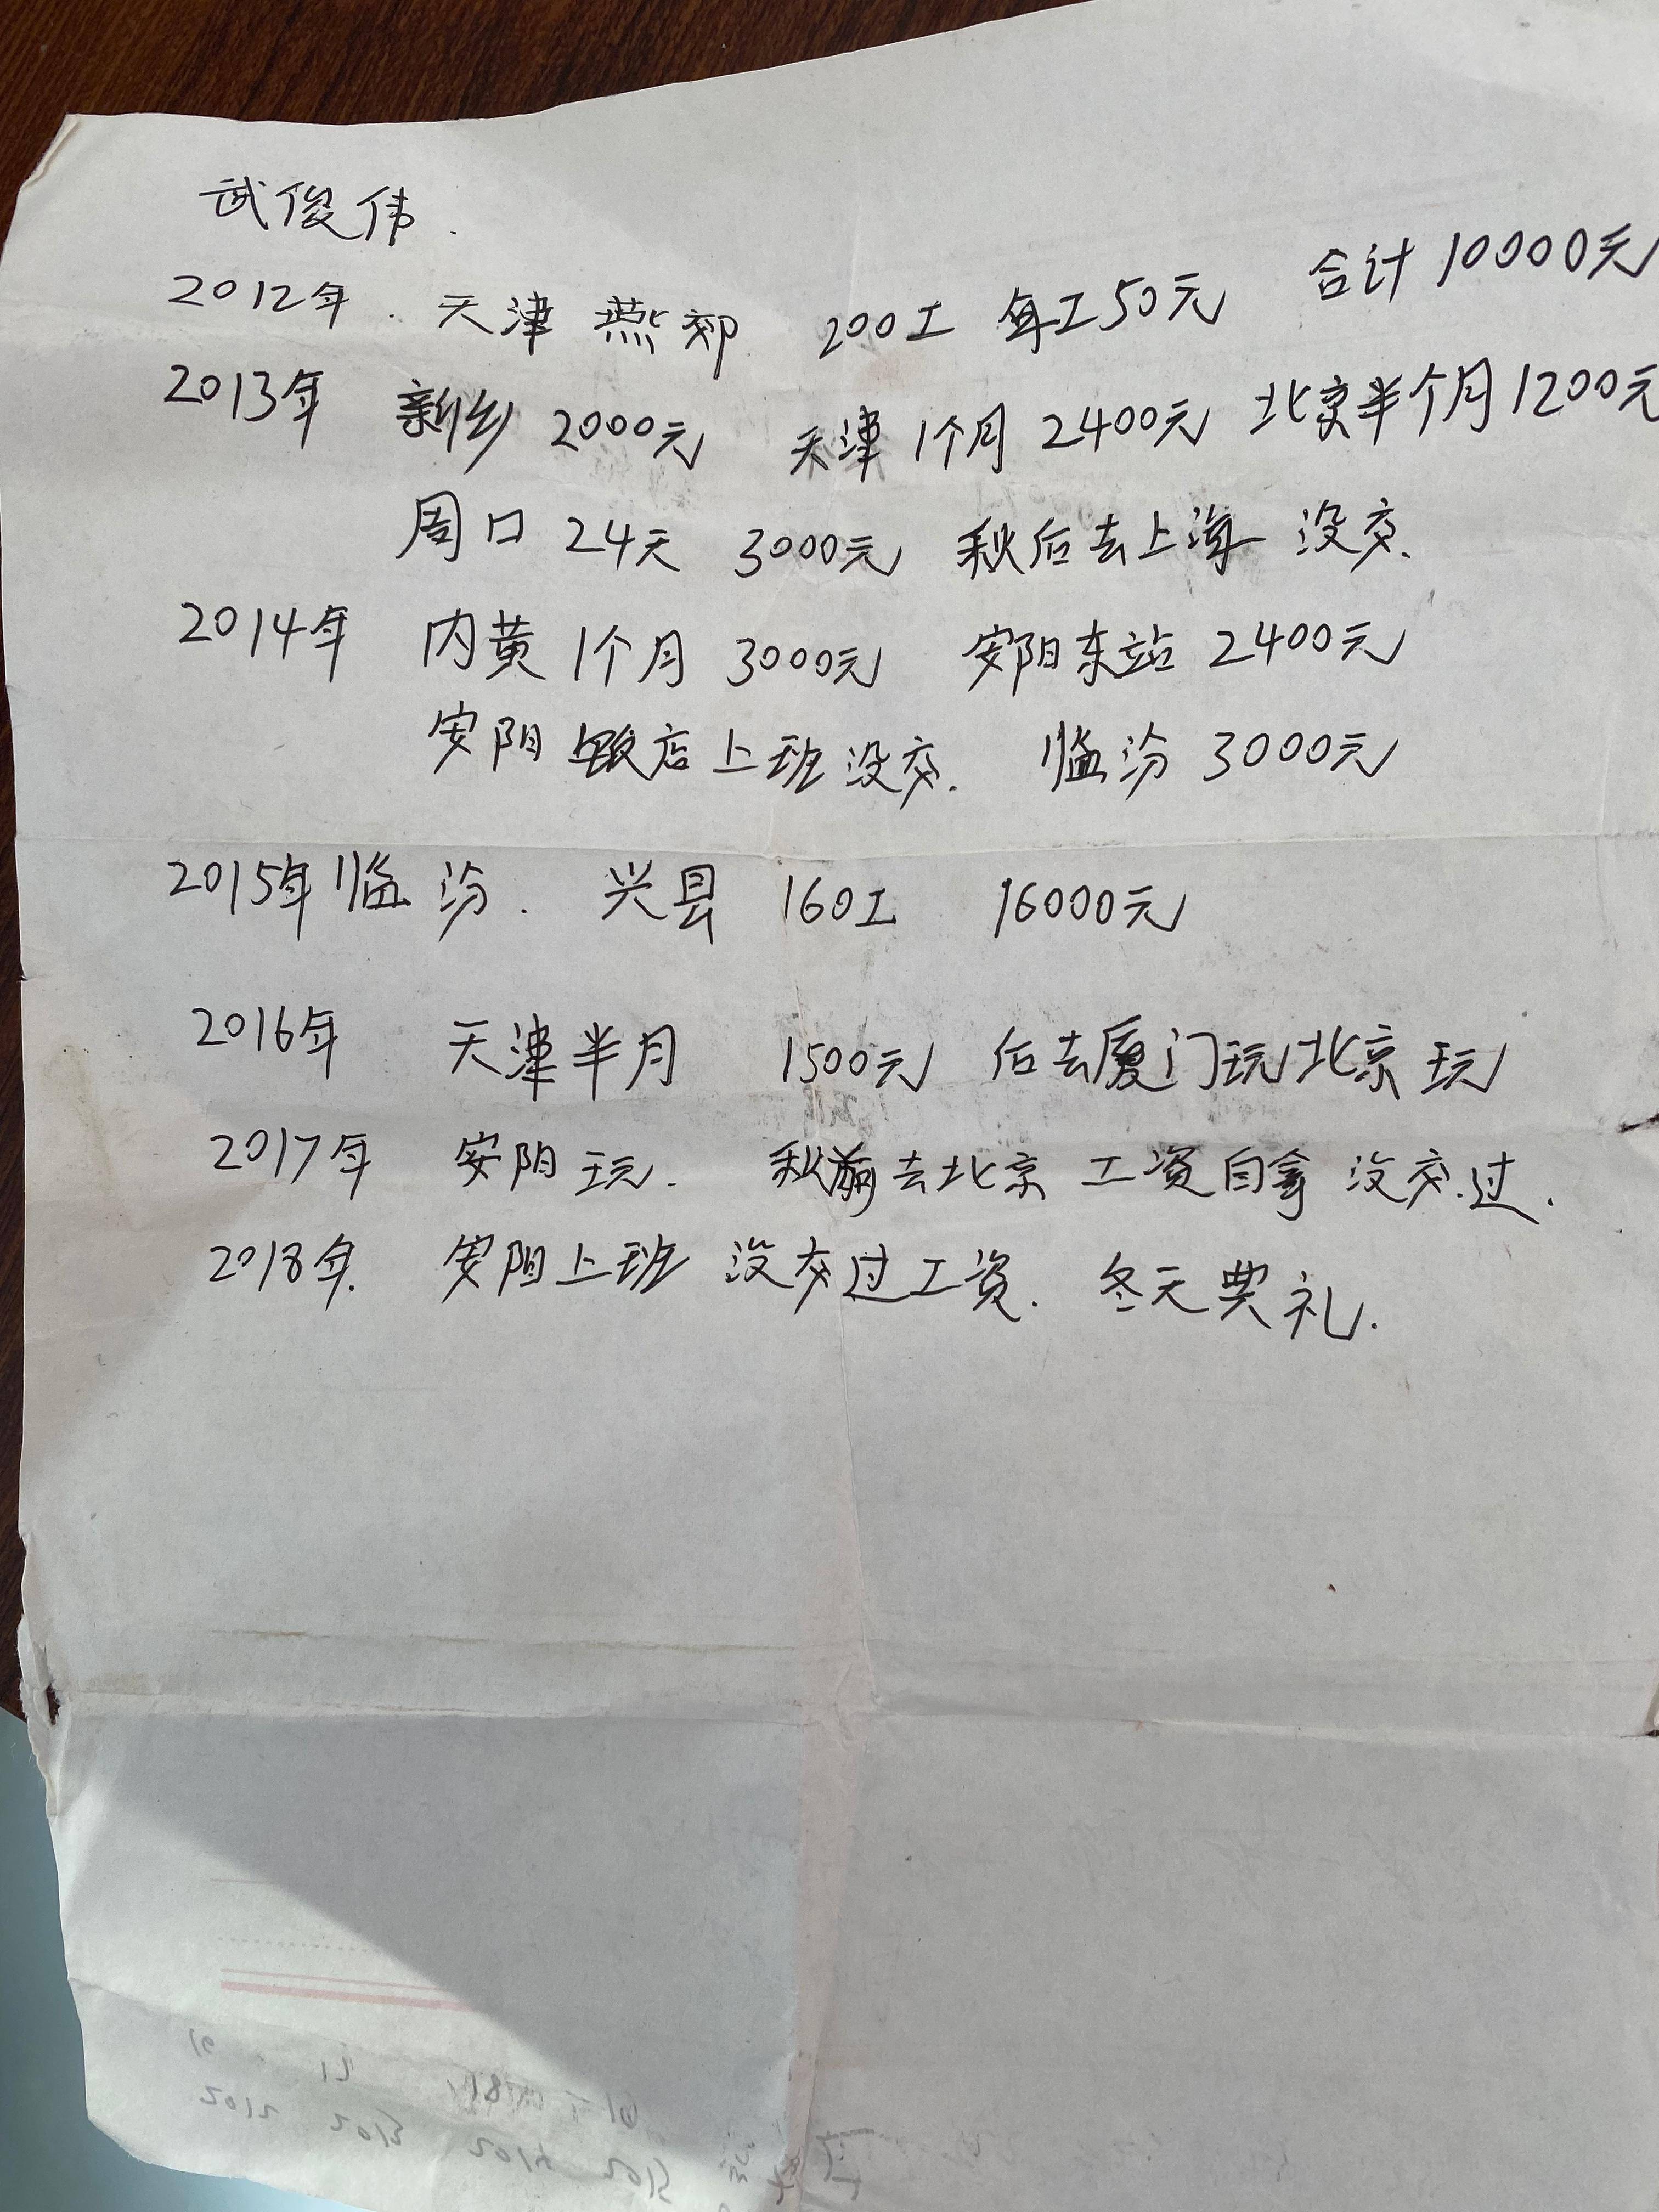 武俊伟.
2012年. 天津 燕郊 200工 每工50元 合计10000元
2013年 新乡 2000元 天津 1个月 2400元 北京半个月1200元
周口 24天 3000元 秋后去上海 没交.
2014年 内黄 1个月 3000元 安阳东站 2400元
安阳 店上班没交. 临汾 3000元
2015年 临汾. 兴县 160工 16000元
2016年 天津半月 1500元 后去厦门玩北京玩
2017年 安阳玩. 秋前去北京 工资自拿 没交过.
2018年. 安阳上班 没交过工资. 冬天典礼.